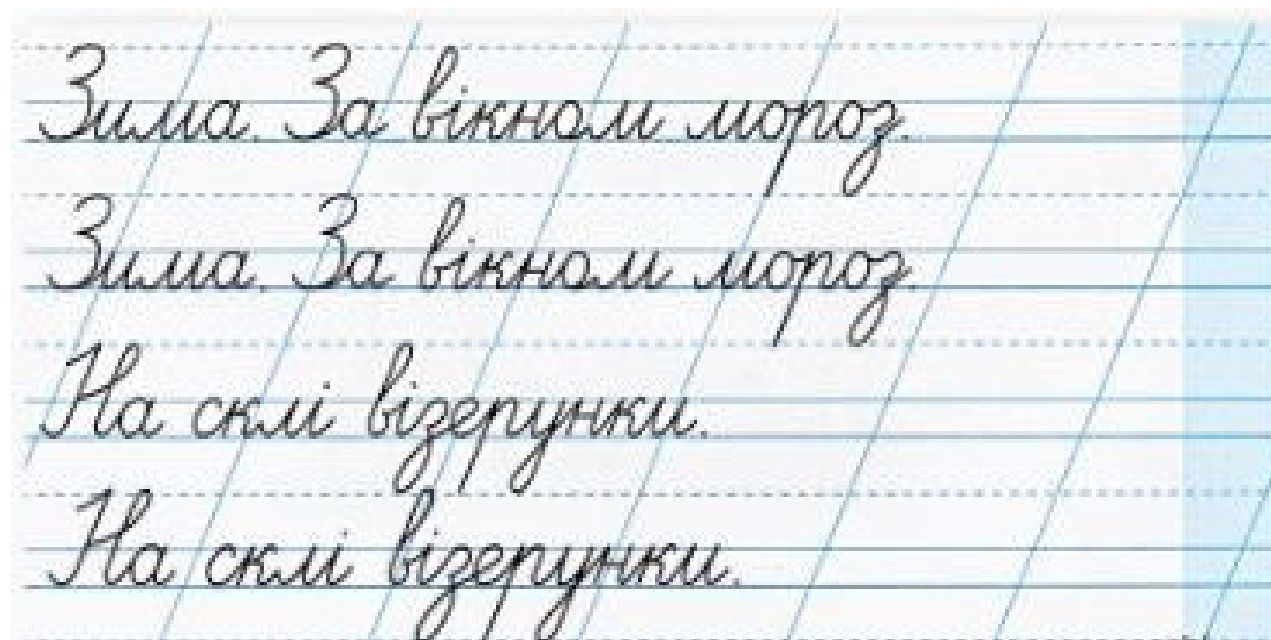 Зима. За вікном мороз.
Зима. За вікном мороз.
На склі візерунки.
На склі візерунки.